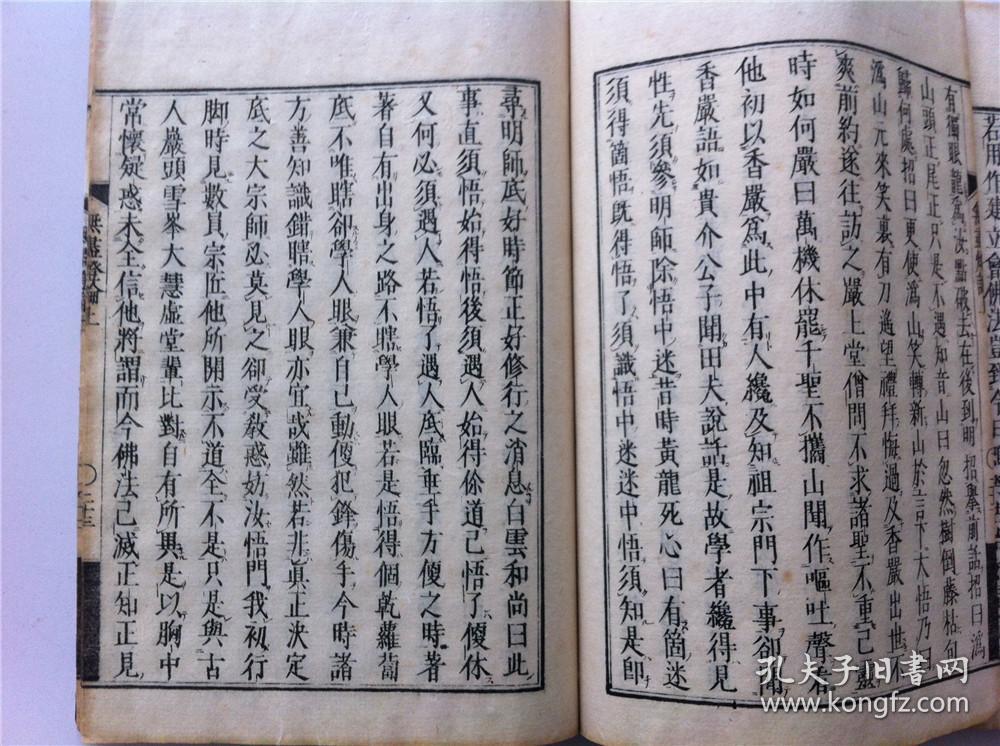 有獨眼龍爲汝點破去在後到明招擧前話招曰潙
山頭正尾正只是不遇知音山曰忽然樹倒藤枯句
歸何處招曰更使潙山笑轉新山於言下大悟乃曰
潙山元來笑裏有刀遙望禮拜悔過及香嚴出世不
爽前約遂往訪之嚴上堂僧問不求諸聖不重己靈
時如何嚴曰萬機休罷千聖不攜山聞作嘔吐聲者
他初以香嚴爲此中有人纔及知祖宗門下事卻聞
香嚴語如貴介公子聞田夫說話是故學者纔得見
性先須參明師除悟中迷昔時黃龍死心曰有箇迷
須得箇悟既得悟了須識悟中迷迷中悟須知是卽
尋明師底好時節正好修行之消息白雲和尚曰此
事直須悟始得悟後須遇人始得你道已悟了便休
又何必須遇人若悟了遇人底臨垂手方便之時著
著自有出身之路不瞎學人眼若是悟得個乾蘿蔔
底不唯瞎卻學人眼兼自己動便犯鋒傷手今時諸
方善知識錯瞎學人眼亦宜哉雖然若非眞正決定
底之大宗師必莫見之卻受敎惑妨汝悟門我初行
脚時見數員宗匠他所開示不道全不是只是與古
人巖頭雪峯大慧虛堂輩比對自有所異是以胸中
常懷疑惑未全信他將謂而今佛法已滅正知正見
二十三
孔夫子旧书网
www.kongfz.com